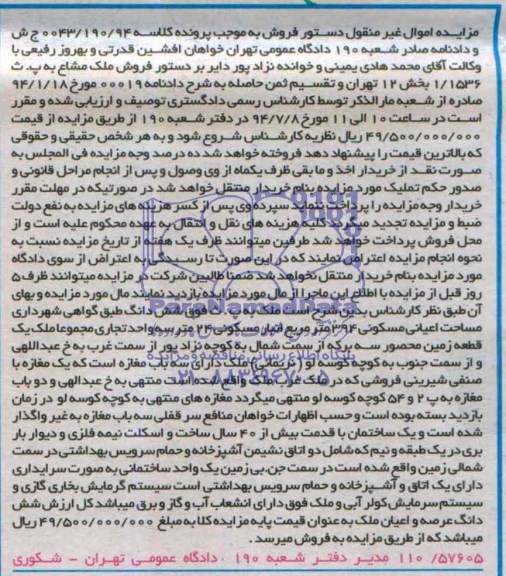 مزایده اموال غیر منقول دستور فروش به موجب پرونده کلاسه ۰۰۴۳/۱۹۰/۹۴ ج ش
و دادنامه صادر شعبه ۱۹۰ دادگاه عمومی تهران خواهان افشین قدرتی و بهروز رفیعی با
وکالت آقای محمد هادی یمینی و خوانده نژاد پور دایر بر دستور فروش ملک مشاع به پ. ث
۱/۱۵۳۶ بخش ۱۲ تهران و تقسیم ثمن حاصله به شرح دادنامه ۰۰۰۱۹ مورخ ۹۴/۱/۱۸
صادره از شعبه مارالذکر توسط کارشناس رسمی دادگستری توصیف و ارزیابی شده و مقرر
است در ساعت ۱۰ الی ۱۱ مورخ ۹۴/۷/۸ در دفتر شعبه ۱۹۰ از طریق مزایده از قیمت
۴۹/۵۰۰/۰۰۰/۰۰۰ ریال نظریه کارشناس شروع شود و به هر شخص حقیقی و حقوقی
که بالاترین قیمت را پیشنهاد دهد فروخته خواهد شد ده درصد وجه مزایده فی المجلس به
صورت نقد از خریدار اخذ و ما بقی ظرف یکماه از وی وصول و پس از انجام مراحل قانونی و
صدور حکم تملیک مورد مزایده بنام خریدار منتقل خواهد شد در صورتیکه در مهلت مقرر
خریدار وجه مزایده را پرداخت ننماید سپرده وی پس از کسر هزینه های مزایده به نفع دولت
ضبط و مزایده تجدید میگردد کلیه هزینه های نقل و انتقال به عهده محکوم علیه است و از
محل فروش پرداخت خواهد شد طرفین میتوانند ظرف یک هفته از تاریخ مزایده نسبت به
نحوه انجام مزایده اعتراض نمایند که در این صورت تا رسیدگی به اعتراض از سوی دادگاه
مورد مزایده بنام خریدار منتقل نخواهد شد ضمنا طالبین شرکت در مزایده میتوانند ظرف ۵
روز قبل از مزایده با اطلاع این ماجرا از مال مورد مزایده بازدید نمایند مال مورد مزایده و بهای
آن طبق نظر کارشناس بدین شرح است ملک به پلاک فوق شش دانگ طبق گواهی شهرداری
مساحت اعیانی مسکونی ۳۹۴ متر مربع انبار مسکونی ۲۴ متر سه واحد تجاری مجموعا ملک یک
قطعه زمین محصور سه بر که از سمت شمال به کوچه نژاد پور از سمت غرب به خ عبداللهی
و از سمت جنوب به کوچه کوسه لو (نریمانی) ملک دارای سه باب مغازه است که یک مغازه با
صنفی شیرینی فروشی که در ملک غربی ملک واقع شده است منتهی به خ عبدالهی و دو باب
مغازه به پ ۲ و ۵۴ کوچه کوسه لو منتهی میگردد مغازه های منتهی به کوچه کوسه لو در زمان
بازدید بسته بوده است و حسب اظهارات خواهان منافع سر قفلی سه باب مغازه به غیر واگذار
شده است و یک ساختمان با قدمت بیش از ۴۰ سال ساخت و اسکلت نیمه فلزی و دیوار بار
بری در یک طبقه و نیم که شامل دو اتاق نشیمن آشپزخانه و حمام سرویس بهداشتی در سمت
شمالی زمین واقع شده است در سمت جن.بی زمین یک واحد ساختمانی به صورت سرایداری
دارای یک اتاق و آشپزخانه و حمام سرویس بهداشتی است سیستم گرمایش بخاری گازی و
سیستم سرمایش کولر آبی و ملک فوق دارای انشعاب آب و گاز و برق میباشد کل ارزش شش
دانگ عرصه و اعیان ملک به عنوان قیمت پایه مزایده کلا به مبلغ ۴۹/۵۰۰/۰۰۰/۰۰۰ ریال
میباشد که از طریق مزایده به فروش میرسد.
۱۱۰/۵۷۶۰۵ مدیر دفتر شعبه ۱۹۰ دادگاه عمومی تهران - شکوری
ParsNamadData
پایگاه اطلاع رسانی مناقصه و مزایده